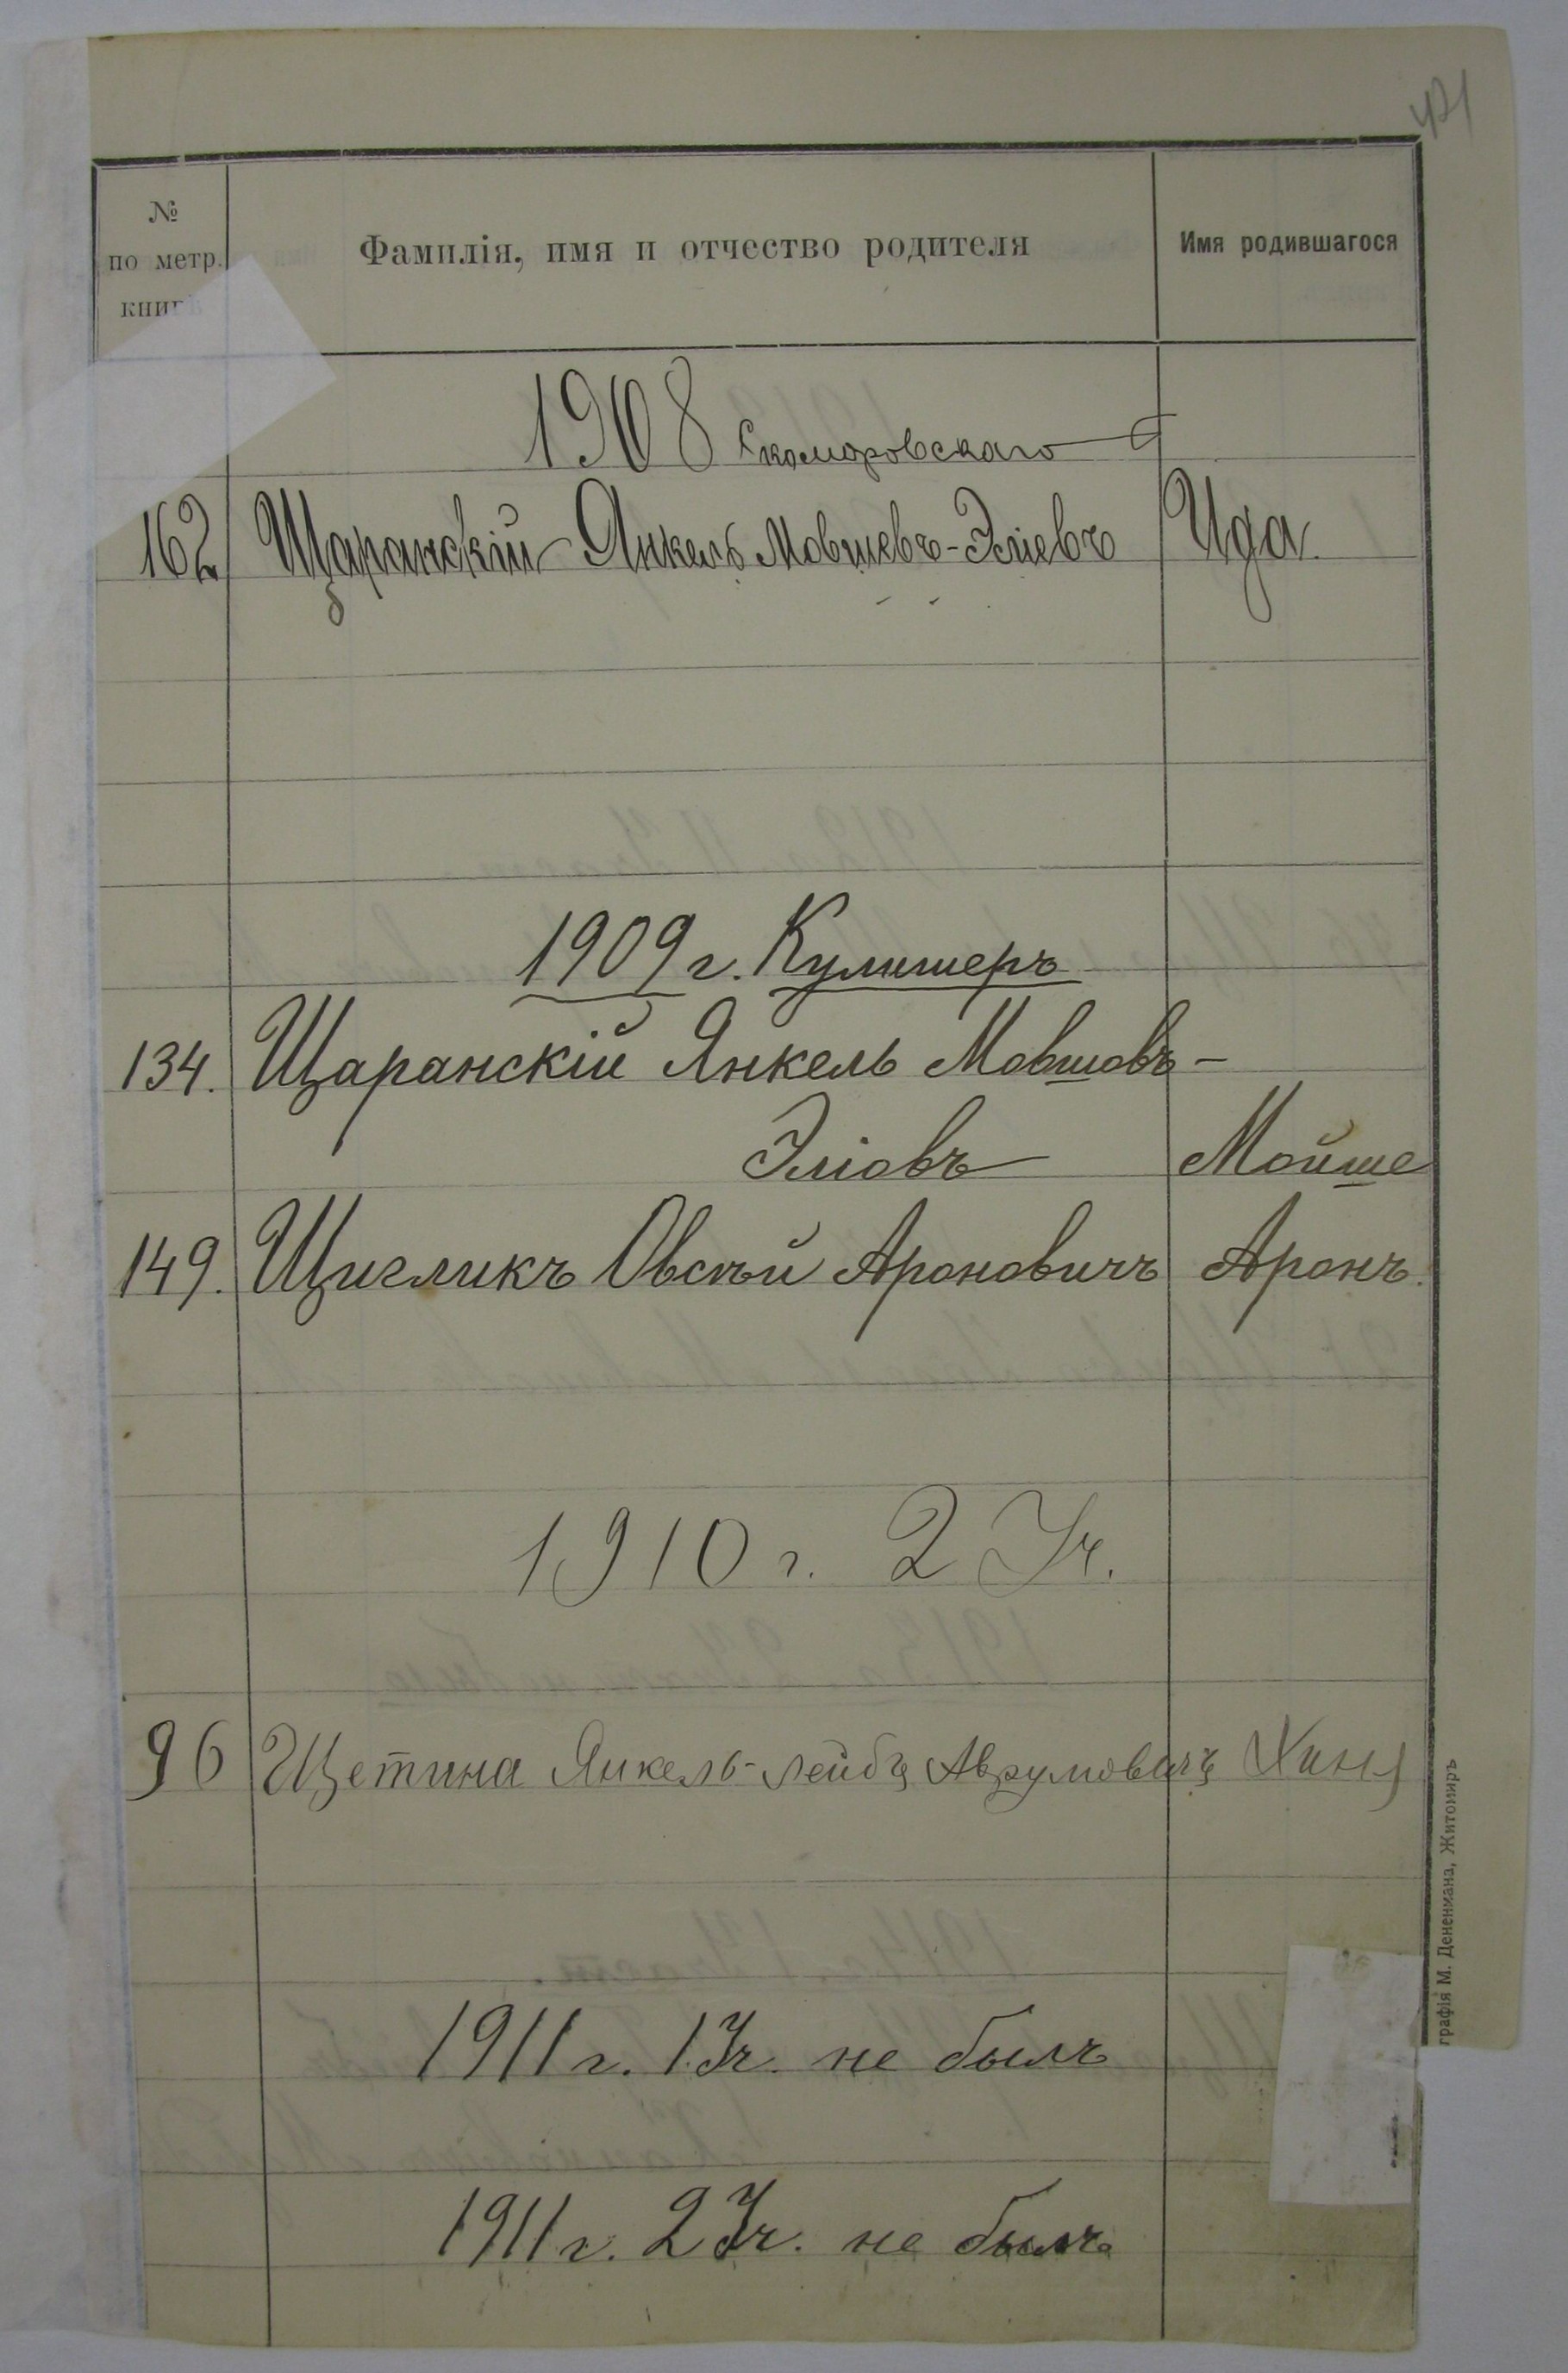 421
№
по метр.
книгѣ
Фамилія, имя и отчество родителя
Имя родившагося
1908 Скоморовскаго
162 Щаранскій Янкель Мовшевъ-Эліевъ Ида
1909 г. Кулишеръ
134. Щаранскій Янкель Мовшовъ-
Эліовъ Мойше
149. Щигликъ Овсѣй Ароновичъ Аронъ.
1910 г. 2 Уч.
96 Щетина Янкель-Лейбъ Аврумовичъ Хиня
1911 г. 1 Уч. не былъ
1911 г. 2 Уч. не былъ
графія М. Дененмана, Житомиръ